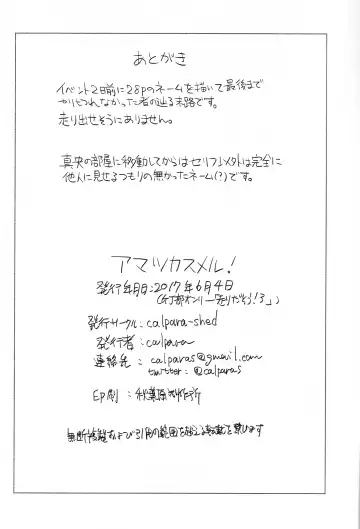 あとがき
イベント2日前に28Pのネームを描いて最後まで
やりとれなかった者の辿る末路です。
走り出せそうにありません。
真央の部屋に移動してからはセリフ以外は完全に
他人に見せるつもりの無かったネーム(?)です。
アマツカスメル!
発行年月日:2017年6月4日
発行サークル:calpara-shed
発行者:calpara
連絡先: calparas@gmail.com
twitter:@calparas
印刷:秋葉原制作所
無断複製および引用の範囲を超える転載を禁じます